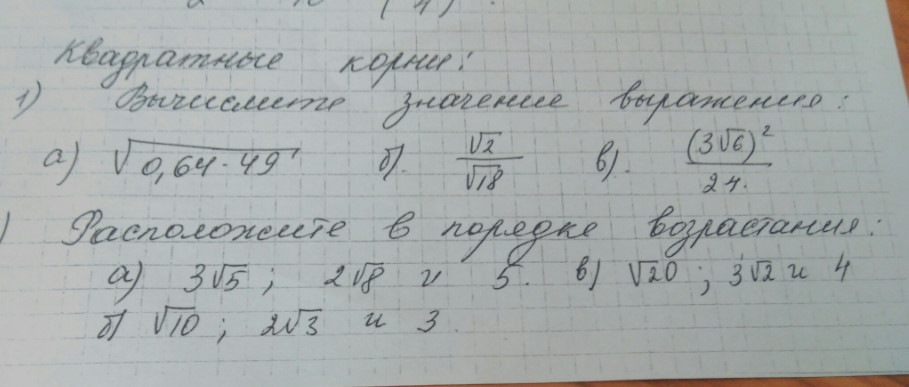 Квадратные корни:
1) Вычислите значение выражения:
а) √0,64·49 б). √2/√18 в). (3√6)²/24.
) Расположите в порядке возрастания:
а) 3√5; 2√8 и 5. в) √20; 3√2 и 4
б) √10; 2√3 и 3.